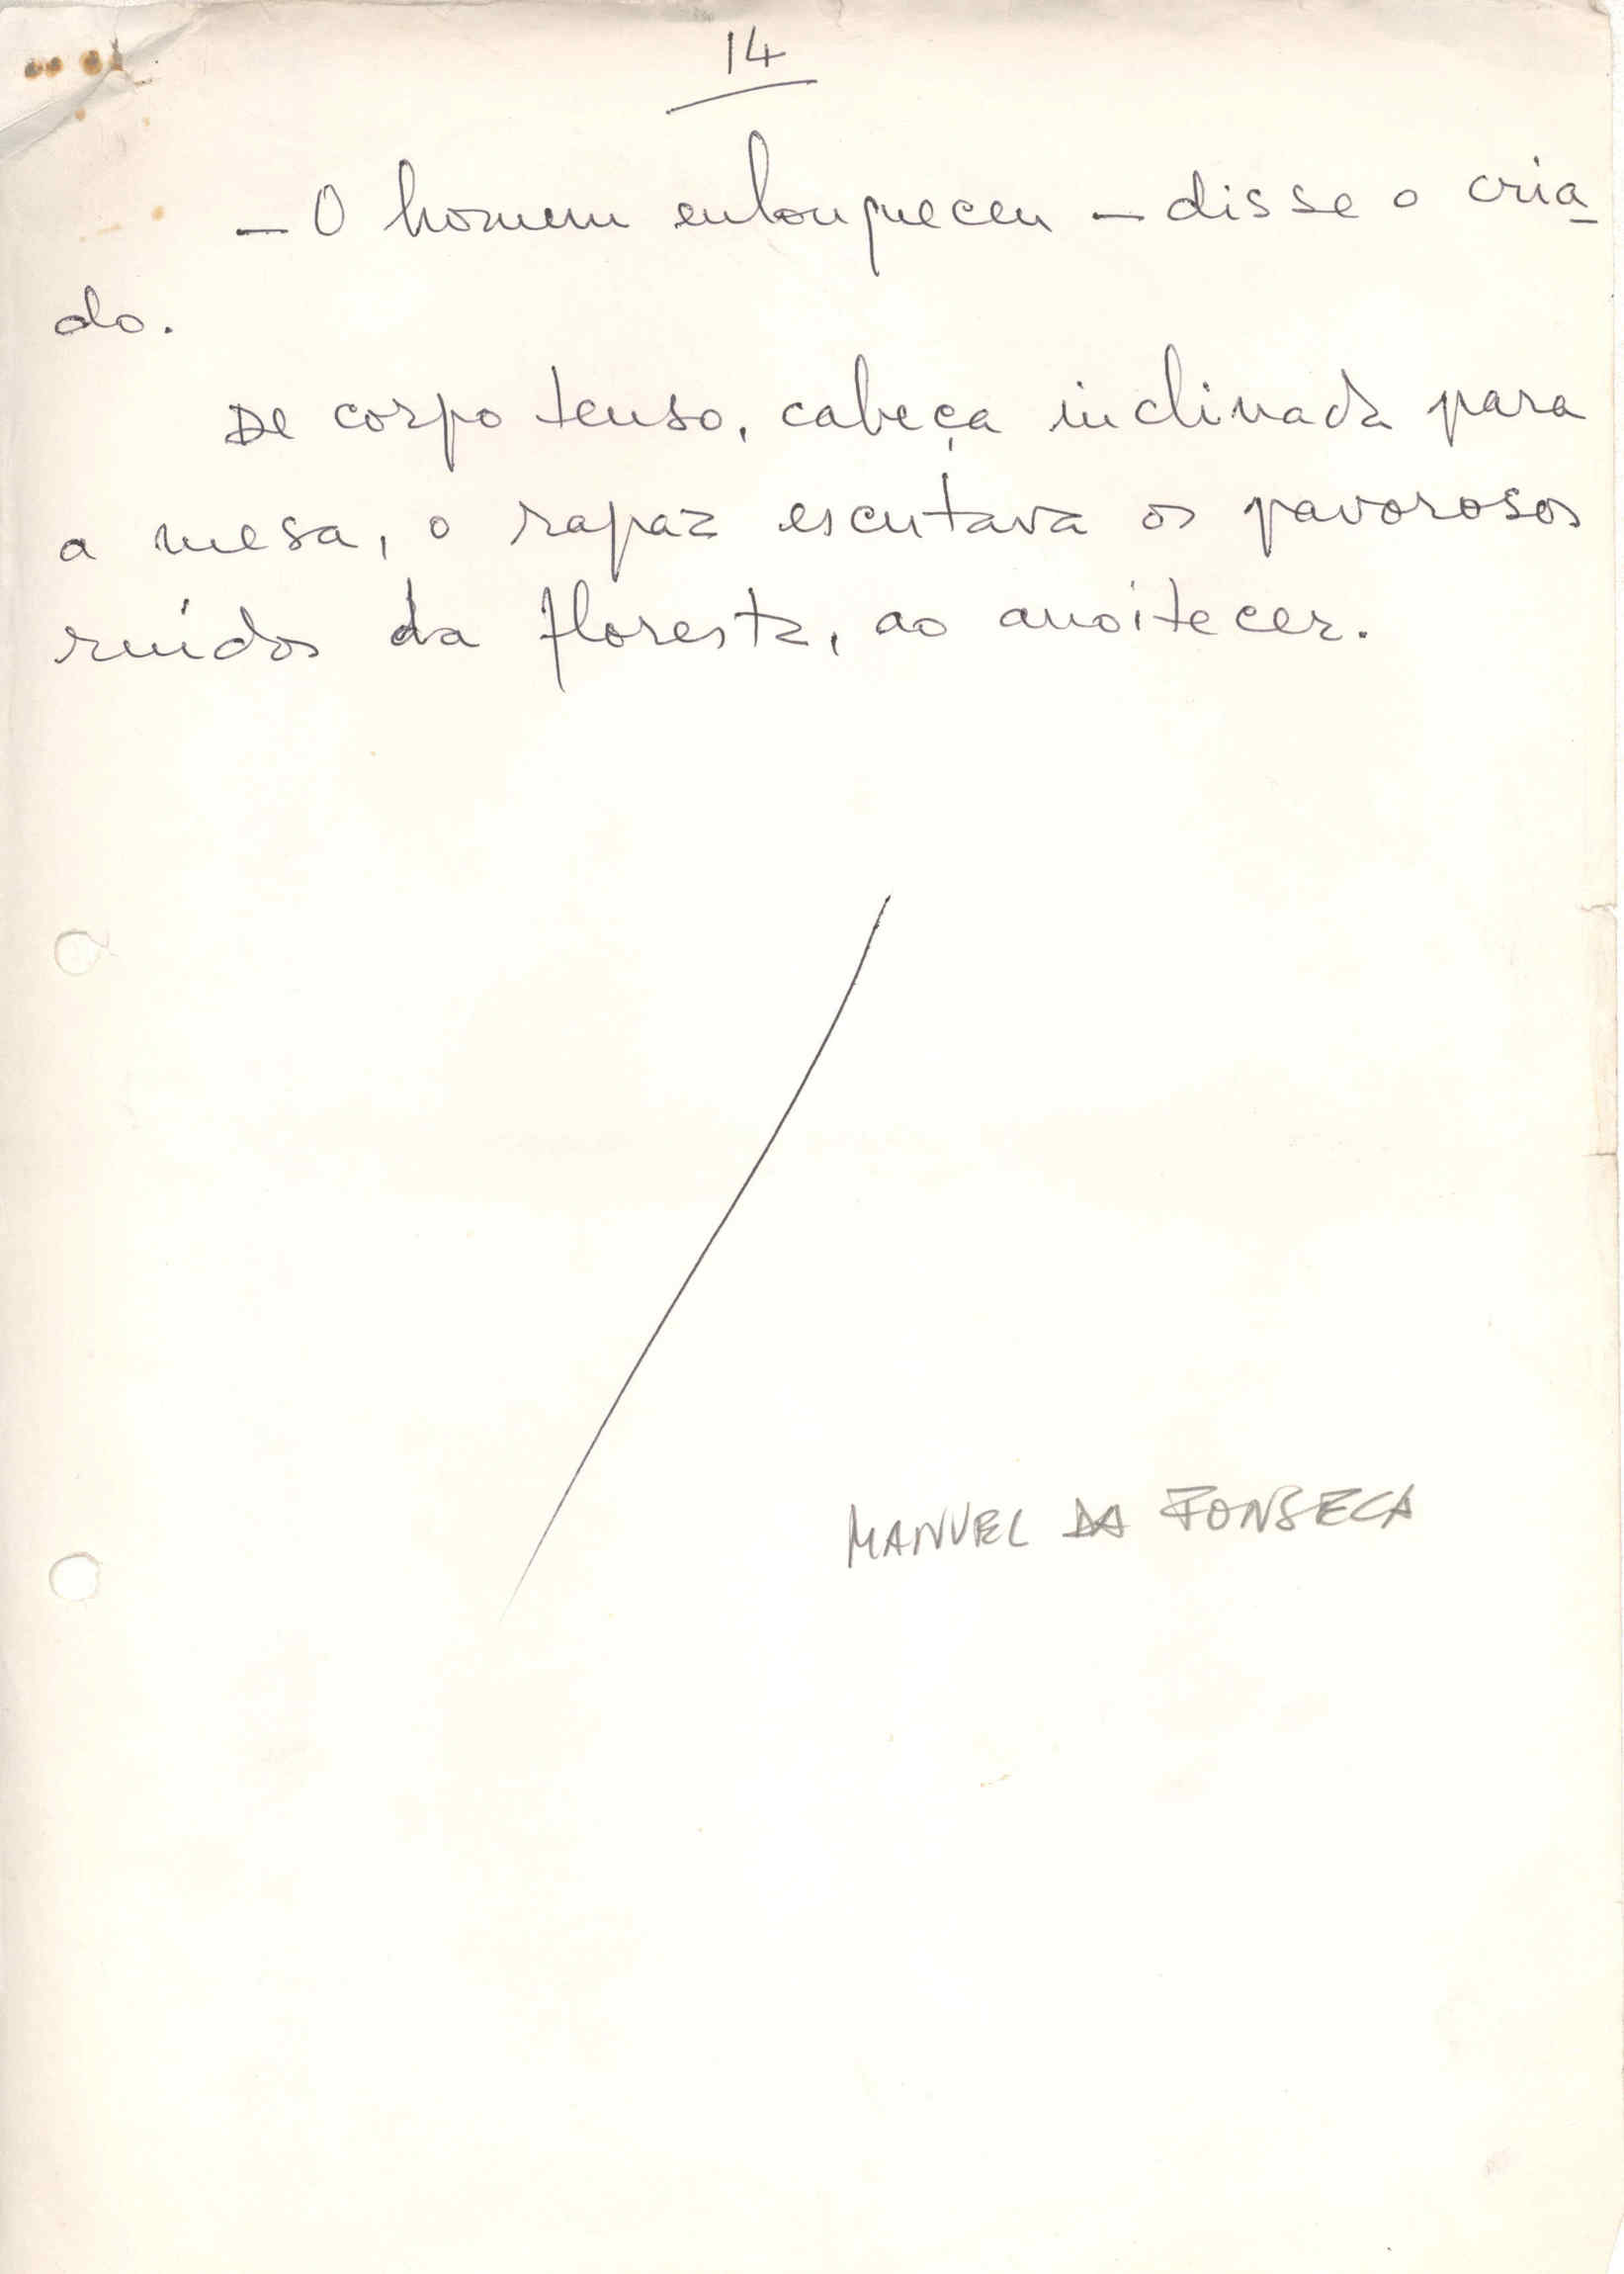 14
— O homem enlouqueceu — disse o cria-
do.
De corpo tenso, cabeça inclinada para
a mesa, o rapaz escutava os pavorosos
ruídos da floresta, ao anoitecer.
MANUEL DA FONSECA